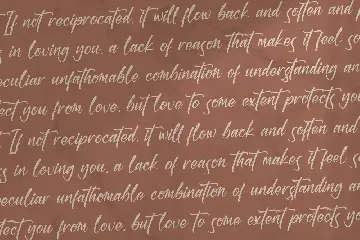 If not reciprocated, it will flow back and soften and
in loving you, a lack of reason that makes it feel so
peculiar unfathomable combination of understanding an
protect you from love, but love to some extent protects you
If not reciprocated, it will flow back and soften and
in loving you, a lack of reason that makes it feel so
peculiar unfathomable combination of understanding
protect you from love, but love to some extent protects y